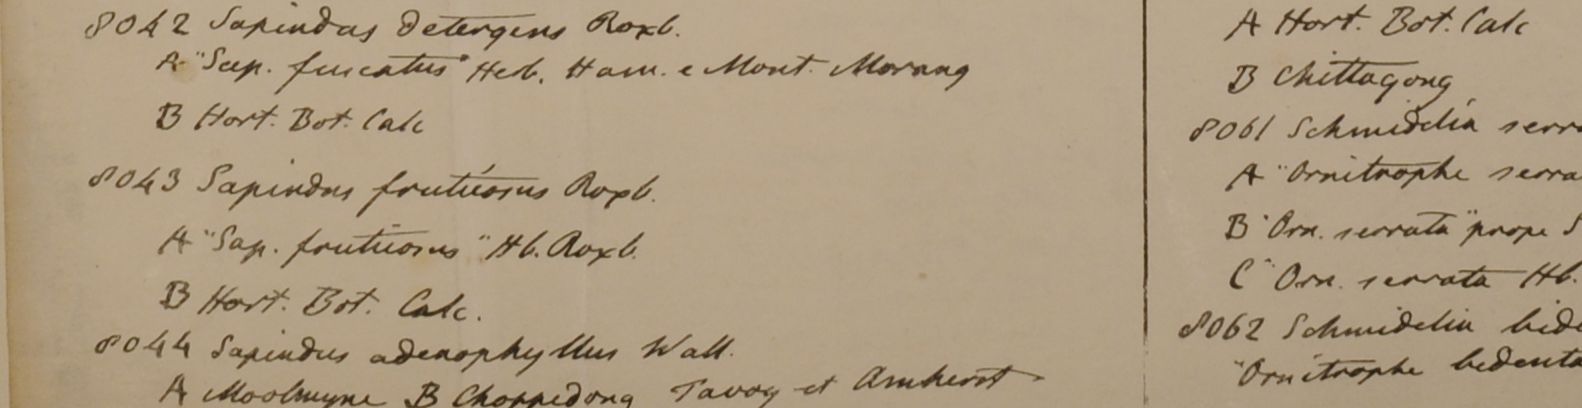 8042 Sapindus detergens Roxb.
A "Sap. fuscatus" Herb. Ham. e Mont. Morang
B Hort. Bot. Calc
8043 Sapindus fruticosus Roxb.
A "Sap. fruticosus" Hb. Roxb.
B Hort. Bot. Calc.
8044 Sapindus adenophyllus Wall.
A Moolmyne B Choppedong Tavoy et Amherst
A Hort. Bot. Calc
B Chittagong
8061 Schmidelia serra
A "Ornitrophe serra
B "Orn. serrata" prope S
C "Orn. serrata Hb.
8062 Schmidelia bide
"Ornitrophe bidenta